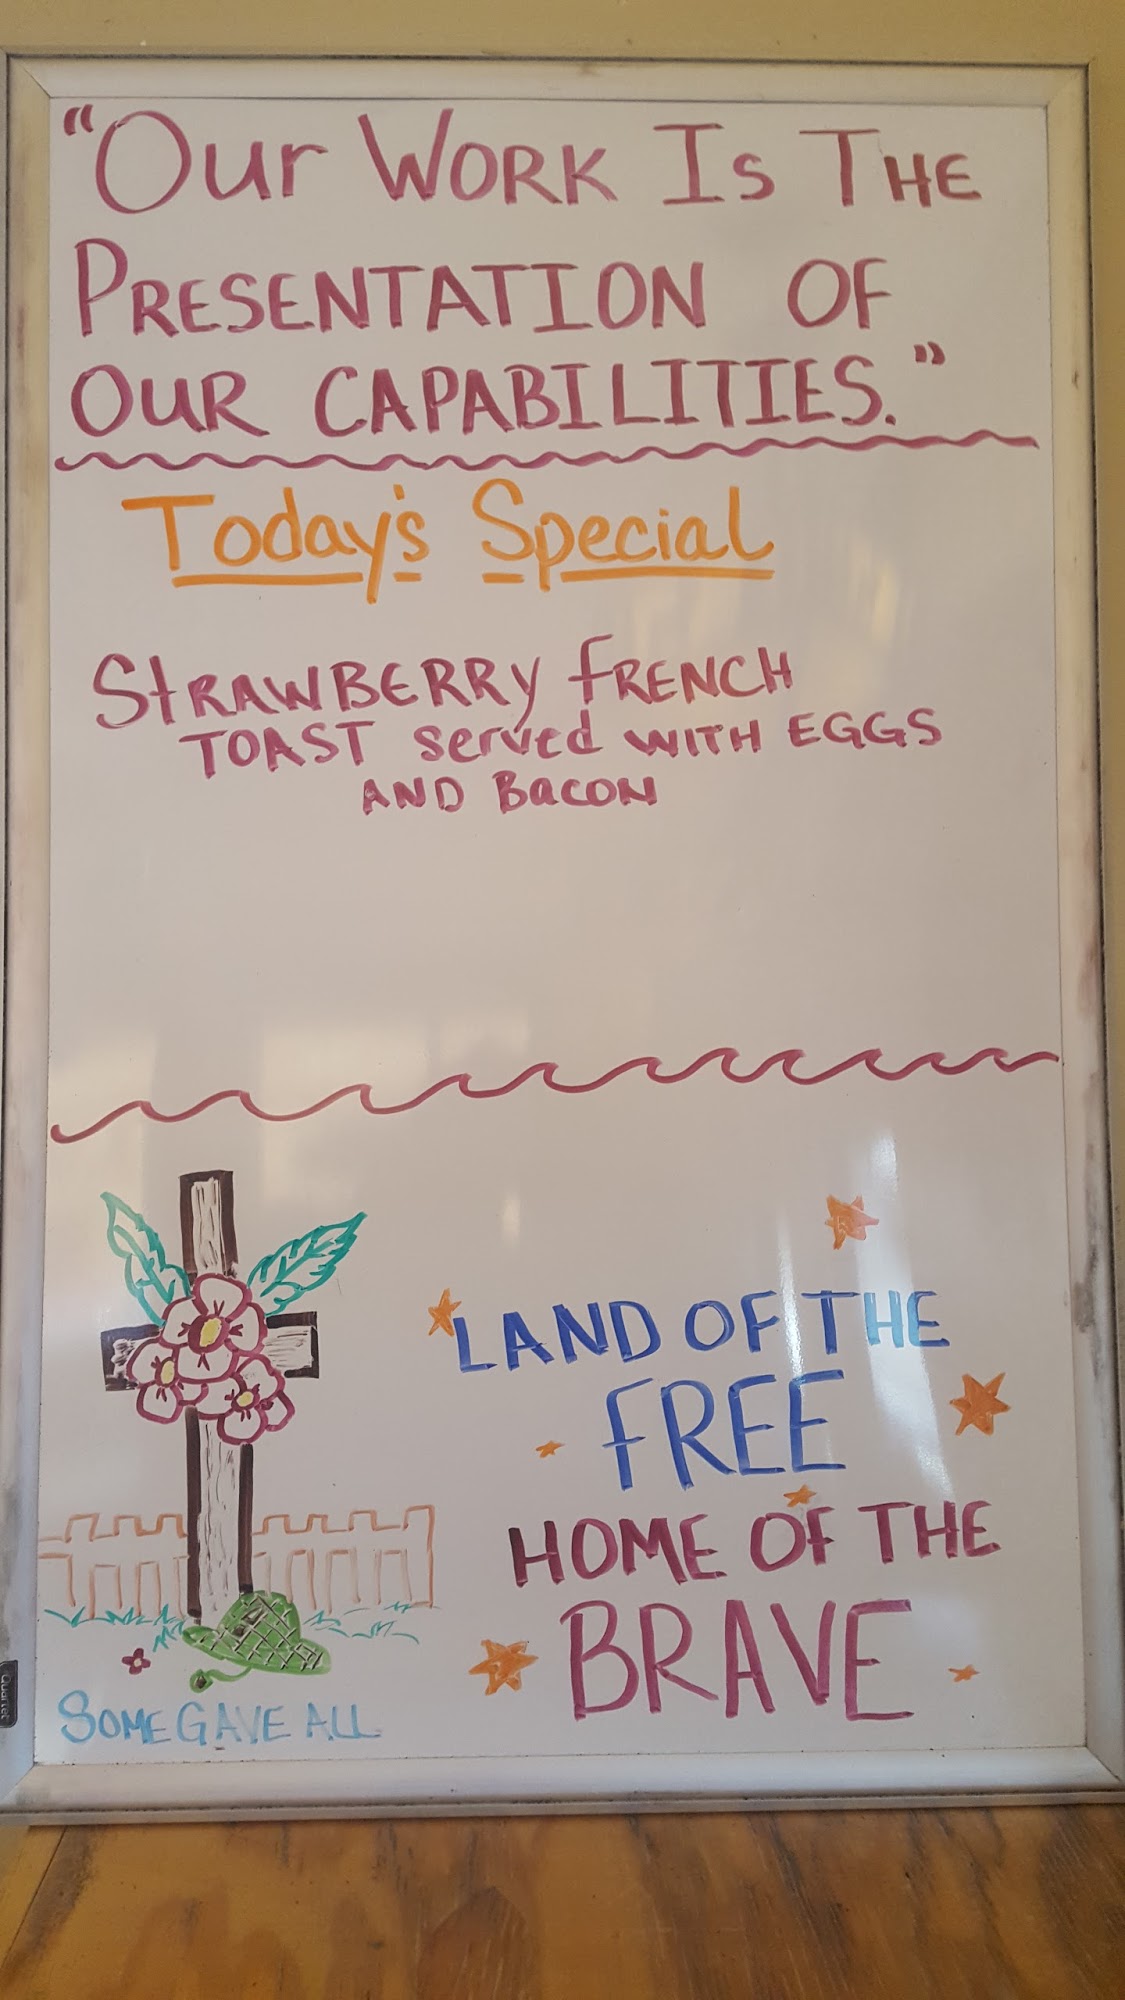 "Our WORK Is THE
PRESENTATION OF
OUR CAPABILITIES."
Today's Special
STRAWBERRY FRENCH
TOAST served WITH EGGS
AND BaCON
LAND OF THE
FREE
HOME OF THE
BRAVE
SOME GAVE ALL
Quartet